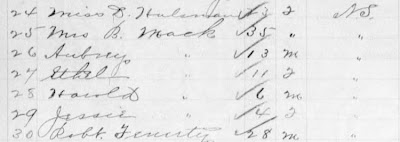 24 Miss D. 2 N.S.
25 Mrs B. Mack " 35 " "
26 Aubrey " 13 m "
27 Ethel " 11 2 "
28 Harold " 6 m "
29 Jessie " 4 2 "
30 Robt. Fenerty " 28 m "